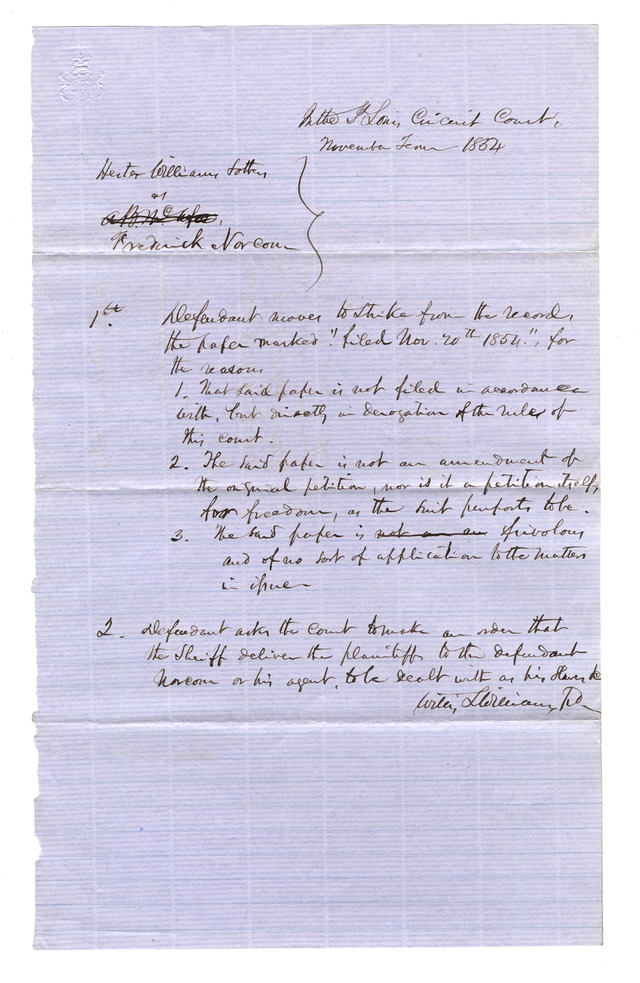 In the St Louis Circuit Court,
November Term 1854
Hester Williams & others
vs
A.B. McAfee,
Frederick Norcom
1st. Defendant moves to strike from the record,
the paper marked "filed Nov. 20th 1854.", for
the reasons
1. That said paper is not filed in accordance
with, but directly in derogation of the rules of
this court.
2. The said paper is not an amendment of
the original petition, nor is it a petition itself,
for freedom, as the suit purports to be.
3. The said paper is not an an frivolous
and of no sort of application to the matters
in issue
2. Defendant asks the Court to make an order that
the Sheriff deliver the plaintiffs to the defendant
Norcom or his agent, to be dealt with as his slaves &c
Williams